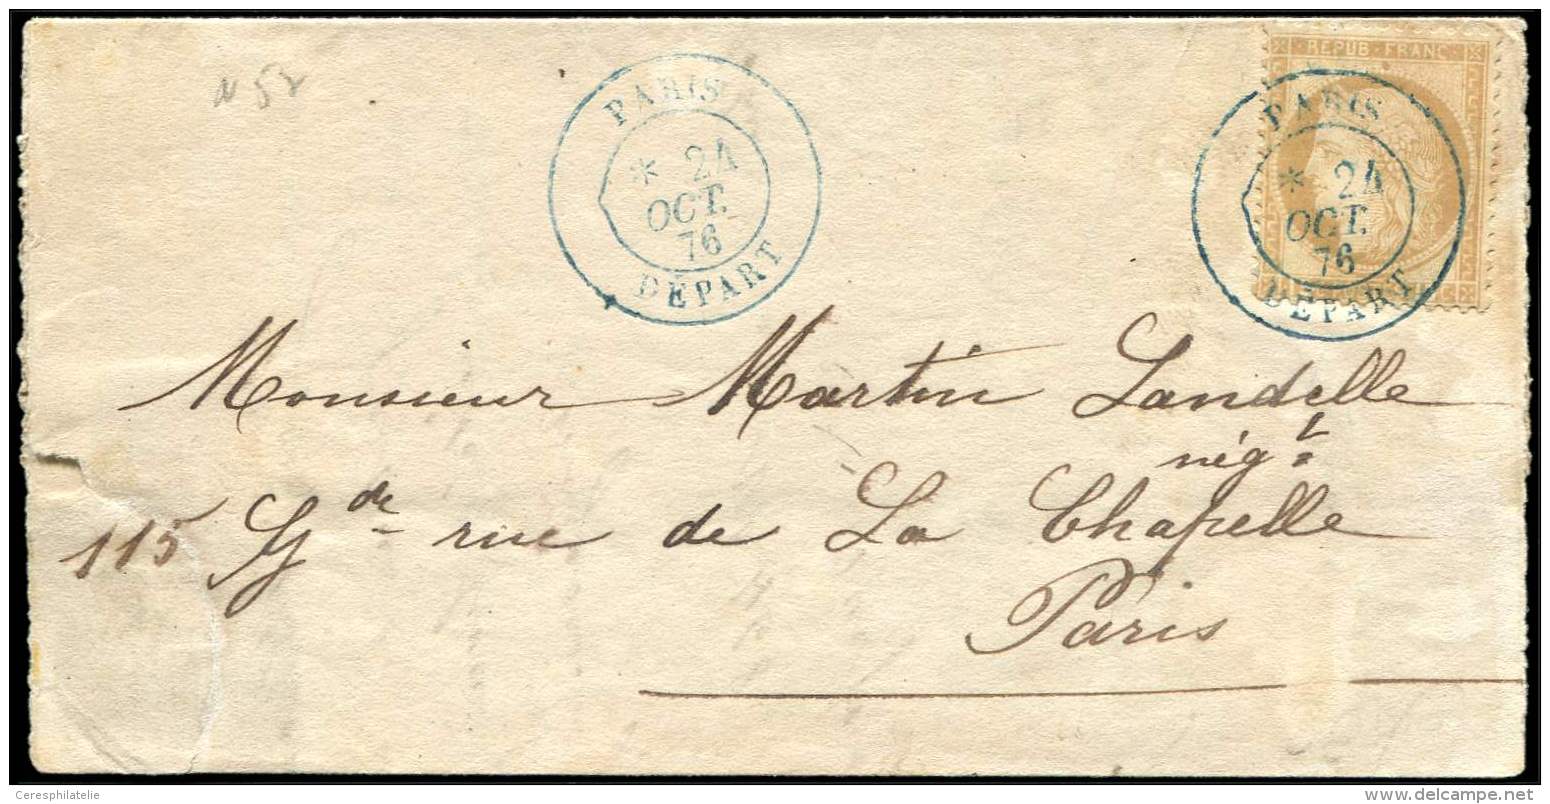 N 52
PARIS
* 24
OCT.
76
DÉPART
REPUB · FRANC
PARIS
* 24
OCT.
76
DÉPART
Monsieur Martin Landelle
négt
115 Gde rue de La Chapelle
Paris
Ceresphilatelie
delcampe.net